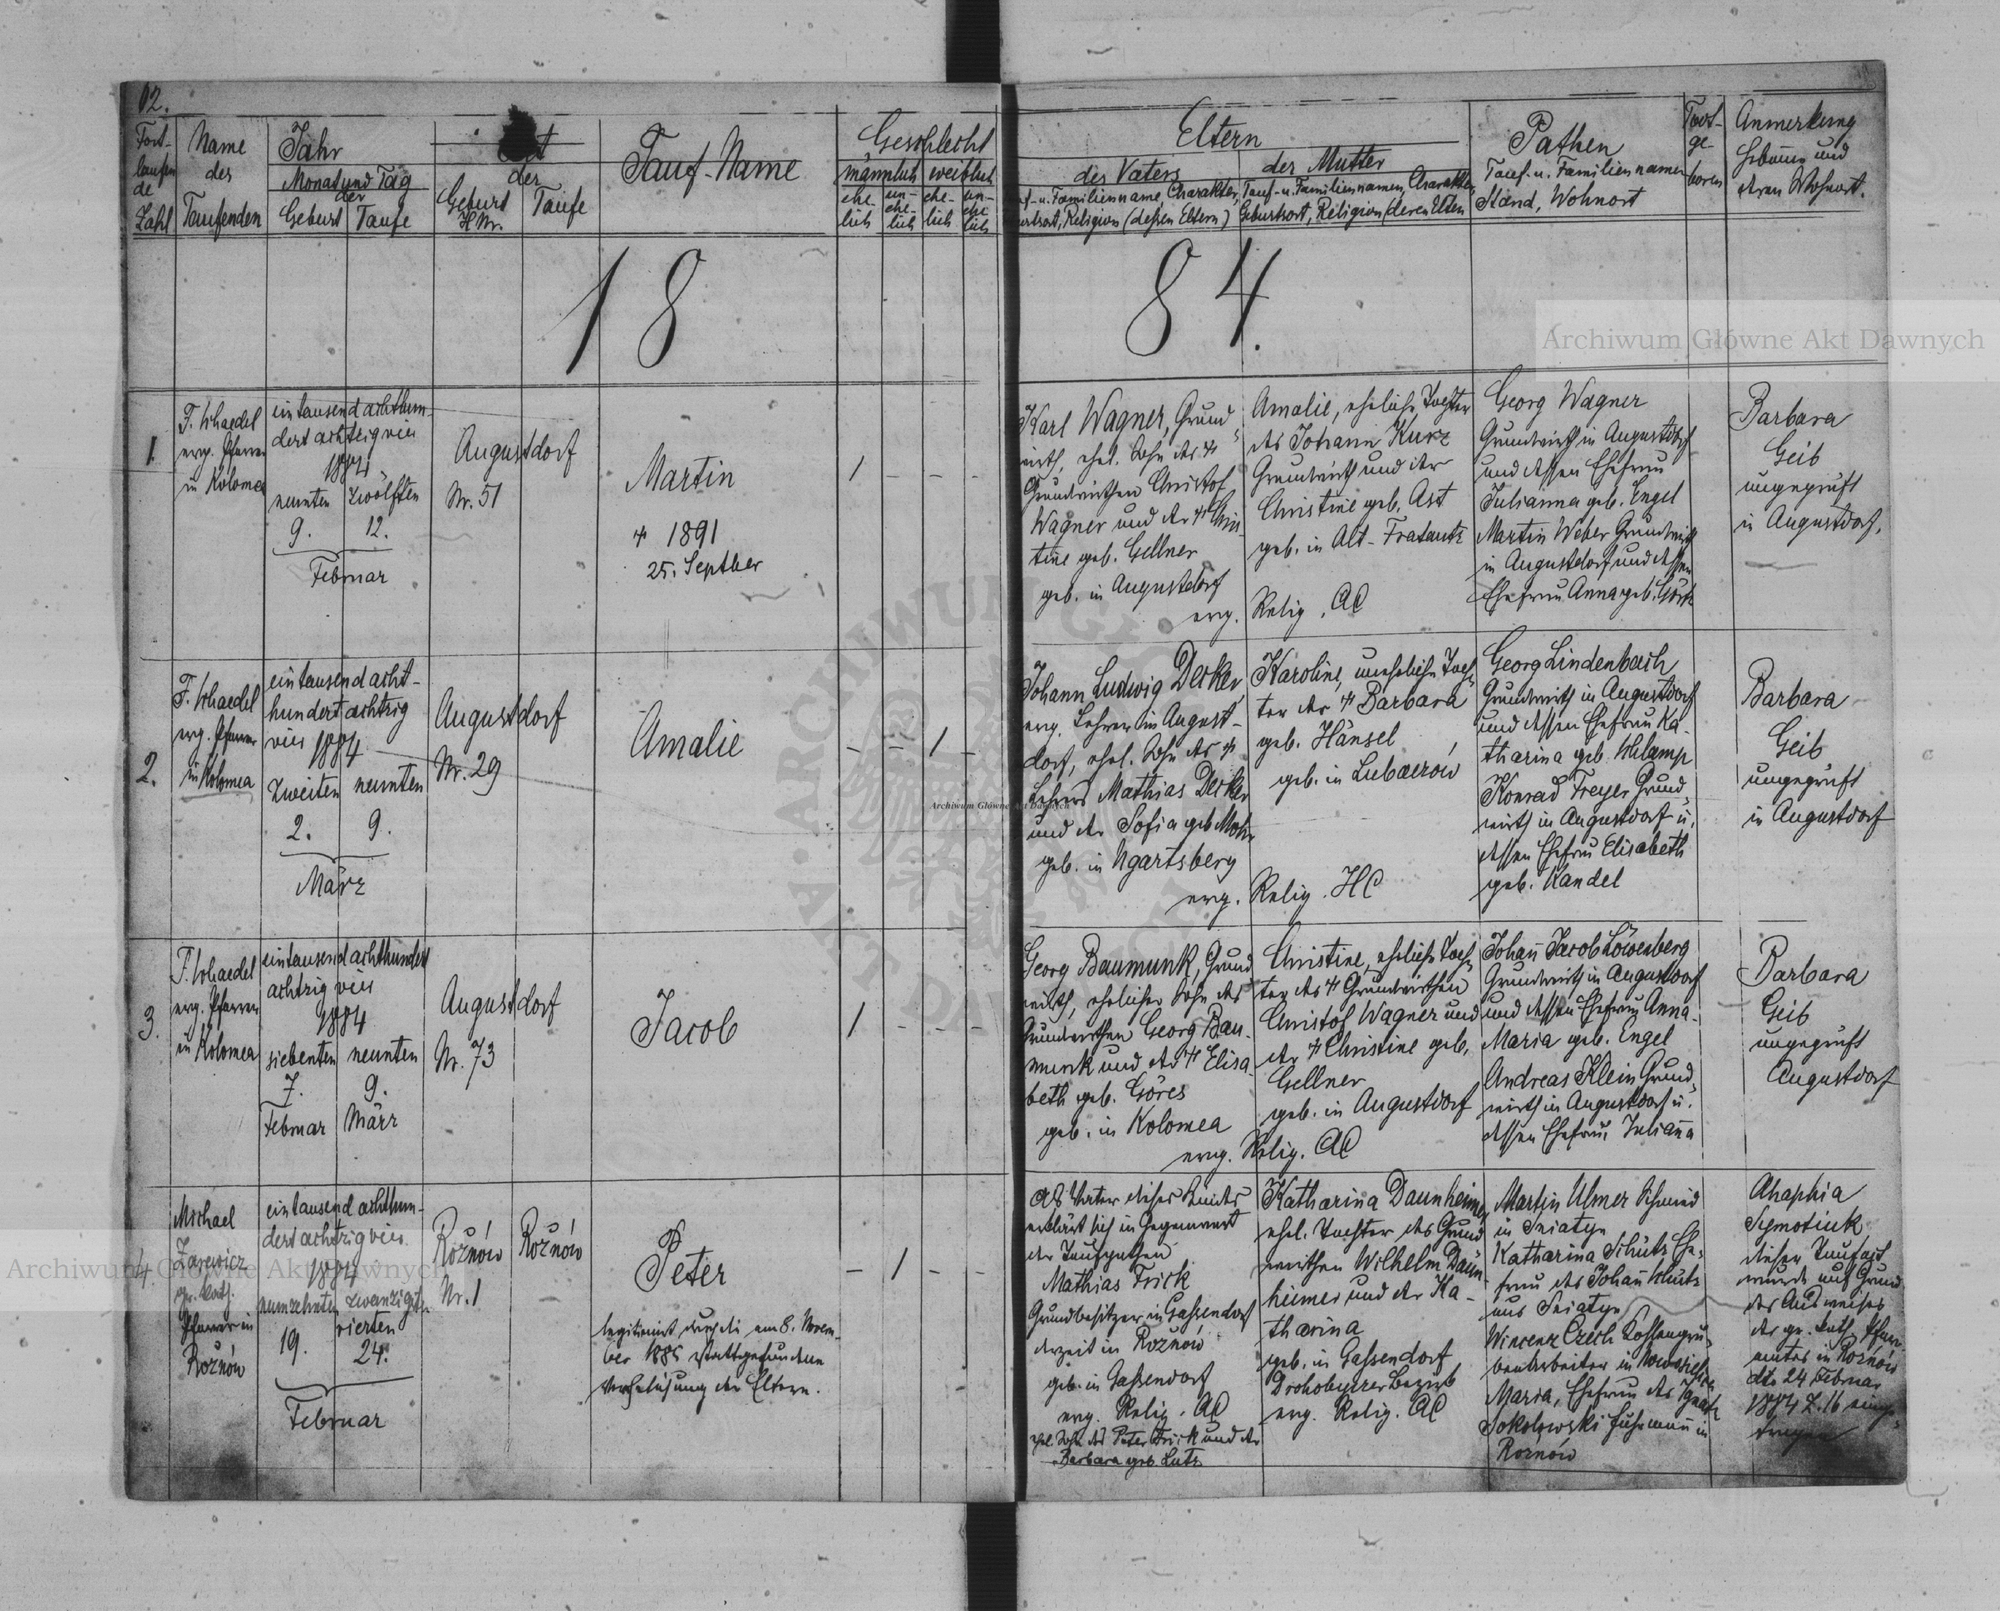 Fort-
laufen
de
Zahl
Name
des
Taufenden
Jahr
Monat und Tag
der
Geburt Taufe
der
Geburt Taufe
H Nr.
Tauf-Name
Geschlecht
männlich weiblich
ehe-
lich
un-
ehe-
lich
ehe-
lich
un-
ehe-
lich
Eltern
des Vaters
Familienname, Charakter,
Religion (dessen Eltern)
der Mutter
Tauf- u. Familiennamen, Charakter,
Geburtsort, Religion (deren Eltern
Pathen
Tauf- u. Familiennamen
Stand, Wohnort
Anmerkung
Hebamme und
deren Wohnort.
18
84.
1.
ev. Pfarrer
in Kolomea
eintausend achthun-
dert achtzig vier
1884
neunten zwölften
9. 12.
Februar
Augustdorf
Nr. 51
Martin
1891
25. Septber
1 - - -
Karl Wagner, Grund-
wirth, ehel. Sohn des
Grundwirthen Christof
Wagner und der Chris-
tine geb. Gellner
geb. in Augustdorf
evg. Relig. AC
Amalie, eheliche Tochter
des Johann Kurz
Grundwirth und der
Christine geb. Ast
geb. in Alt-Fratautz
Georg Wagner
Grundwirth in Augustdorf
und dessen Ehefrau
Julianna geb. Engel
Martin Weber Grundwirth
in Augustdorf und dessen
Ehefrau Anna geb.
Barbara
Geib
ungeprüft
in Augustdorf.
2.
evg. Pfarrer
in Kolomea
eintausend acht-
hundert achtzig
vier 1884
zweiten neunten
2. 9.
März
Augustdorf
Nr. 29
Amalie
- - 1 -
Johann Ludwig Decker
evg. Lehrer in August-
dorf, ehel. Sohn des
Lehrers Mathias Decker
und der Sofia geb.
geb. in Ugartsberg
evg. Relig. HC
Karoline, uneheliche Toch-
ter der Barbara
geb. Hänsel
geb. in
Georg Lindenbach
Grundwirth in Augustdorf
und dessen Ehefrau Ka-
tharina geb.
Konrad Freyer Grund-
wirth in Augustdorf u.
dessen Ehefrau Elisabeth
geb. Kandel
Barbara
Geib
ungeprüft
in Augustdorf
3.
evg. Pfarrer
in Kolomea
eintausend achthundert
achtzig vier
1884
siebenten neunten
7. 9.
Februar März
Augustdorf
Nr. 73
Jacob
1 - - -
Georg Baumunk, Grund-
wirth, ehelicher Sohn des
Grundwirthen Georg Bau-
munk und der Elisa-
beth geb. Göres
geb. in Kolomea
evg. Relig. AC
Christine, eheliche Toch-
ter des Grundwirthen
Christof Wagner und
der Christine geb.
Gellner
geb. in Augustdorf
Johan Jacob Löwenberg
Grundwirth in Augustdorf
und dessen Ehefrau Anna-
Maria geb. Engel
Andreas Klein Grund-
wirth in Augustdorf u.
dessen Ehefrau Juliana
Barbara
Geib
ungeprüft
Augustdorf
4.
Michael
gr. kath.
Pfarrer in
Rožnów
eintausend achthun-
dert achtzig vier
1884
neunzehnten zwanzigst
vierten
19. 24.
Februar
Rožnów Rožnów
Nr. 1
Peter
legitimirt durch die am 8. Novem-
ber stattgefundene
Verehelichung der Eltern.
- 1 - -
Als Vater dieses Kindes
erklärt sich in Gegenwart
der Taufpathen
Mathias Frick
Grundbesitzer in Gassendorf
derzeit in Rožnów
geb. in Gassendorf
evg. Relig. AC
ehel. Sohn des Peter Frick und der
Barbara geb. Lutz
Katharina Daunheimer
ehel. Tochter des Grund-
wirthen Wilhelm Daun-
heimer und der Ka-
tharina
geb. in Gassendorf
Drohobyczer Bezirk
evg. Relig. AC
Martin Ulmer Schmied
in Sniatyn
Katharina Schütz Ehe-
frau des Johan
aus Sniatyn
in
Maria, Ehefrau des Ignatz
Sokolowski Fuhrmann in
Rožnów
Ahaphia
Symotiuk
dieser Taufact
wurde auf Grund
des Ausweises
des gr. kath. Pfarr-
amtes in Rožnów
dto 24 Februar
1884 Z. 16 einge-
tragen
Archiwum Główne Akt Dawnych
Archiwum Główne Akt Dawnych
Archiwum Główne Akt Dawnych